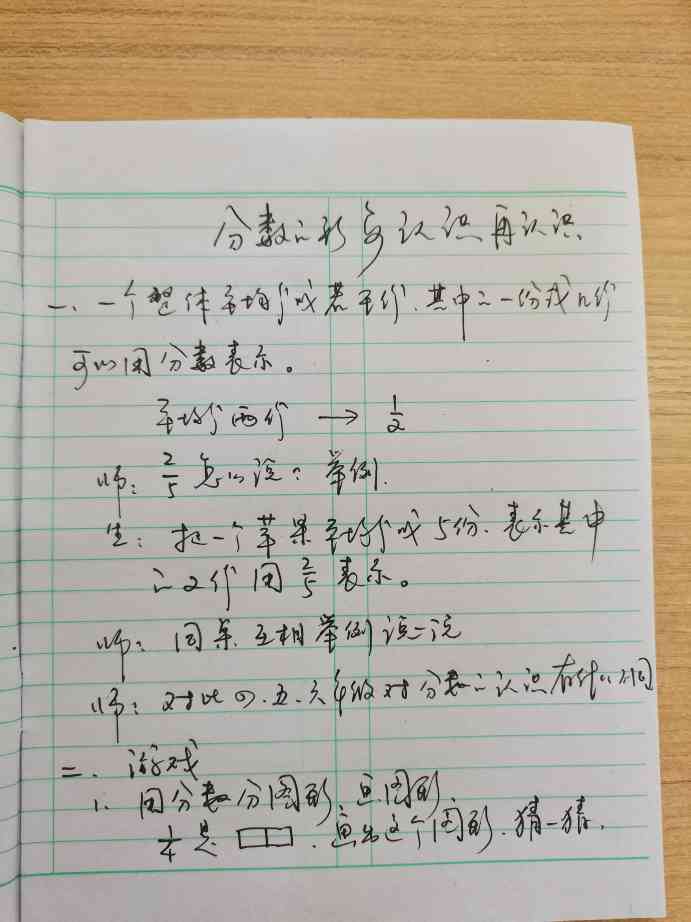 分数的形与认识再认识
一、一个整体平均分成若干份,其中的一份或几份
可以用分数表示。
平均分两份 → 1/2
师:2/5怎么说?举例.
生:把一个苹果平均分成5份.表示其中
的2份用2/5表示。
师:同桌互相举例说一说
师:对比四.五.六年级对分数的认识有什么不同
二.游戏
1.用分数分图形 画图形
1/4是 . 画出这个图形.猜一猜.